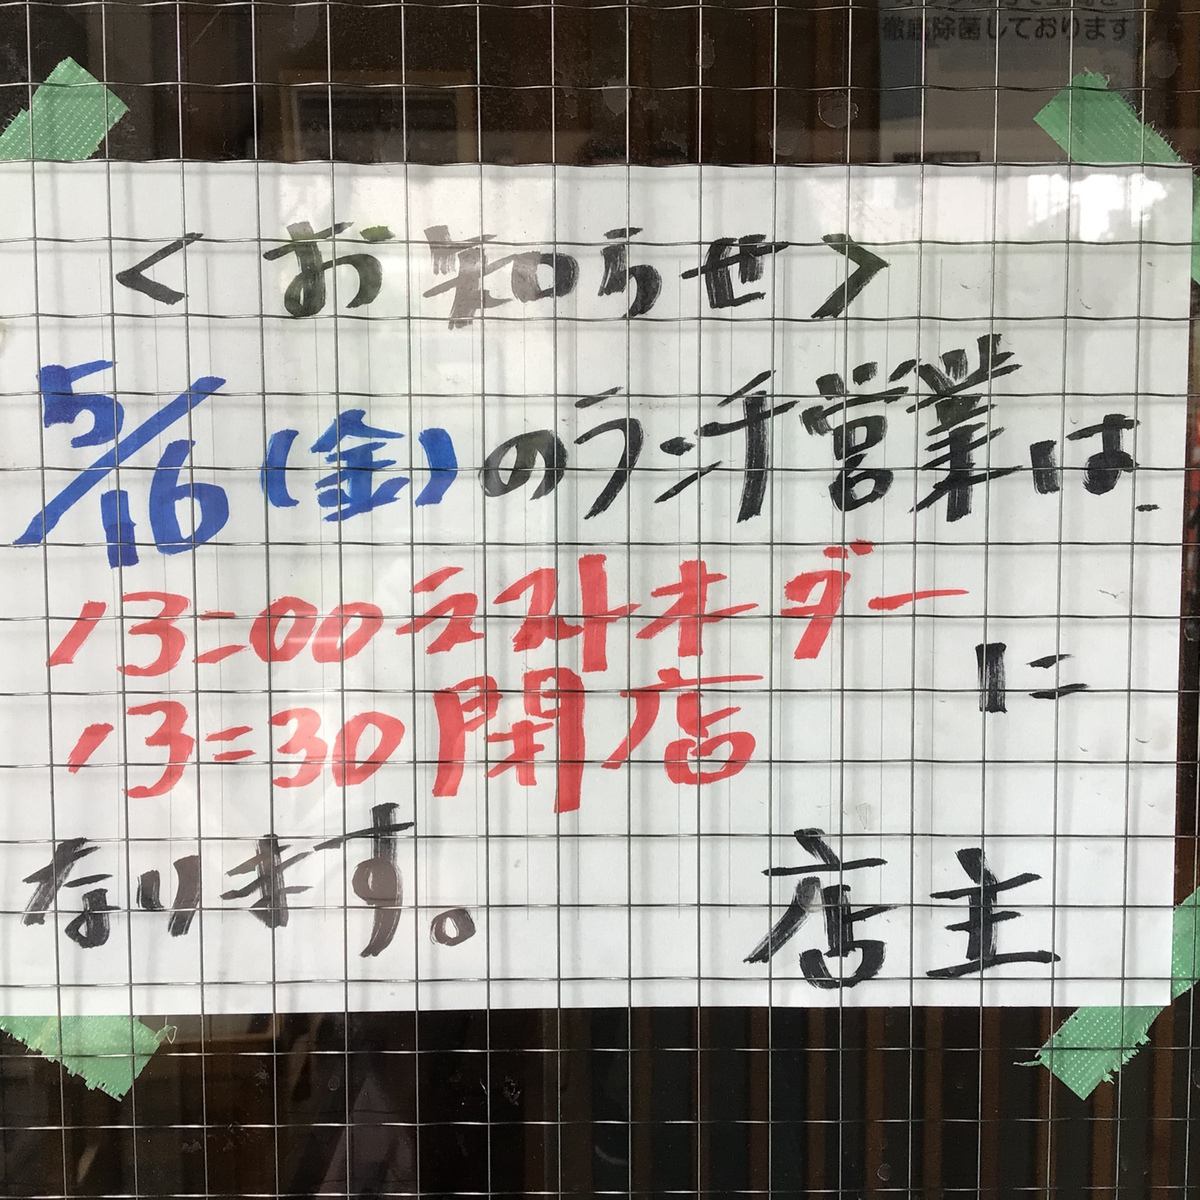 徹底除菌しております
<お知らせ>
5/16(金)のランチ営業は、
13:00ラストオーダー
に
13:30閉店
なります。
店主